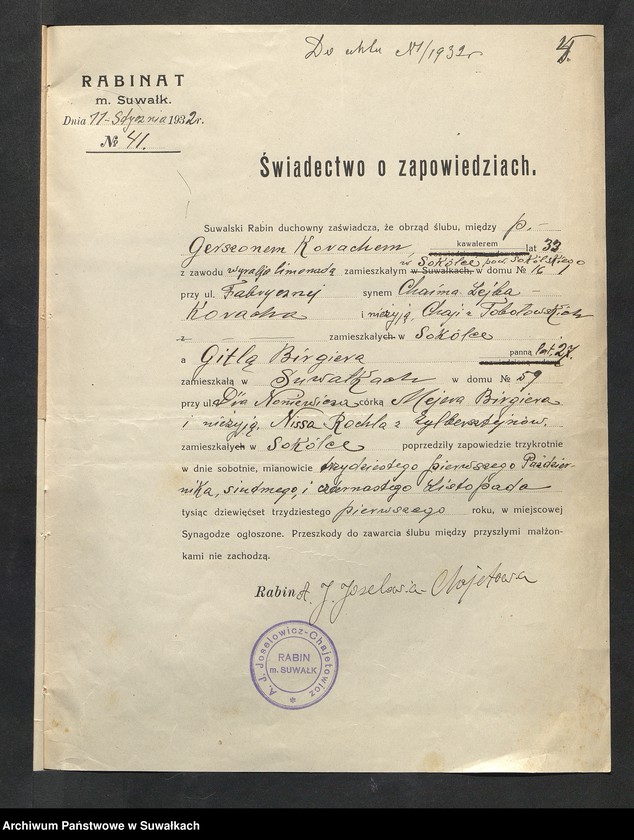 Do aktu N1/1932r
4.
RABINAT
m. Suwałk.
Dnia 11-Stycznia 1932r.
№ 41.
Świadectwo o zapowiedziach.
Suwalski Rabin duchowny zaświadcza, że obrząd ślubu, między p. –
Gerszonem Korachem kawalerem lat 33
w Sokółce pow. Sokólskiego
z zawodu wyrabia limonadę zamieszkałym w Suwałkach, w domu № 16
przy ul. Fabrycznej synem Chaima Lejba –
Koracha i nieżyj. Chaji z Tobolowskich
z zamieszkałych w Sokółce
a Gitlą Birgiera panną lat 27
zamieszkałą w Suwałkach w domu № 59
przy ul. Dra Noniewicza córką Mejera Birgiera
i nieżyj. Nissa Rochla z Zylbersztejnów
zamieszkałych w Sokółce poprzedziły zapowiedzie trzykrotnie
w dnie sobotnie, mianowicie trzydziestego pierwszego Paździer-
nika, siódmego, i czternastego Listopada
tysiąc dziewięćset trzydziestego pierwszego roku, w miejscowej
Synagodze ogłoszone. Przeszkody do zawarcia ślubu między przyszłymi małżon-
kami nie zachodzą.
Rabin A. J. Joselowicz-Chajetowicz
A. J. Joselowicz-Chajetowicz
RABIN
m. SUWAŁK
Archiwum Państwowe w Suwałkach